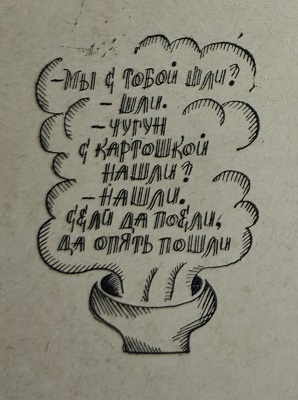 –МЫ С ТОБОЙ ШЛИ?
– ШЛИ.
– ЧУГУН
С КАРТОШКОЙ
НАШЛИ?
– НАШЛИ.
СЕЛИ ДА ПОЕЛИ,
ДА ОПЯТЬ ПОШЛИ